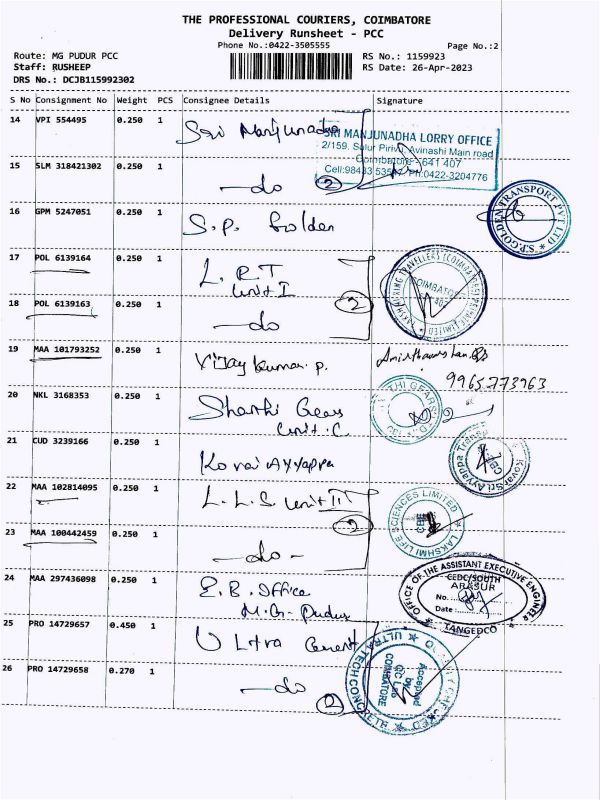 THE PROFESSIONAL COURIERS, COIMBATORE
Delivery Runsheet - PCC
Phone No.:0422-3505555
Page No.:2
Route: MG PUDUR PCC
RS No.: 1159923
Staff: RUSHEEP
RS Date: 26-Apr-2023
DRS No.: DCJB115992302
S No Consignment No Weight PCS Consignee Details Signature
14 VPI 554495 0.250 1 Sri Manjunadha
SRI MANJUNADHA LORRY OFFICE
2/159, Sulur Pirivu, Avinashi Main road
Coimbatore - 641 407
Ph:0422-3204776
15 SLM 318421302 0.250 1 -do 2
16 GPM 5247051 0.250 1 S.P. Golden
S.P. GOLDEN TRANSPORT PVT LTD
17 POL 6139164 0.250 1 L.R.T
Unit I
18 POL 6139163 0.250 1 -do 2
19 MAA 101793252 0.250 1 Vijay Kumar. p.
9965773963
20 NKL 3168353 0.250 1 Shanthi Gears
Unit: C
21 CUD 3239166 0.250 1 Kovai Ayyappa
Kovai Sri Ayyappa Transport
CBE
22 MAA 102814095 0.250 1 L.L.S Unit III
LAKSHMI LIFE SCIENCES LIMITED
CBE
23 MAA 100442459 0.250 1 -do- 2
24 MAA 297436098 0.250 1 E.B. Office
M.G. Pudur
OFFICE OF THE ASSISTANT EXECUTIVE ENGINEER
CEDC/SOUTH
ARASUR
No.
Date
TANGEDCO
25 PRO 14729657 0.450 1 Ultra Cement
ULTRATECH CONCRETE
Accepted
by
QC Lab
COIMBATORE
26 PRO 14729658 0.270 1 -do 2